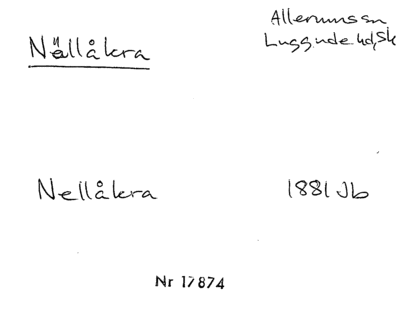 Nällåkra
Allerums sn
Luggude hd, Sk
Nellåkra
1881 Jb
Nr 17874